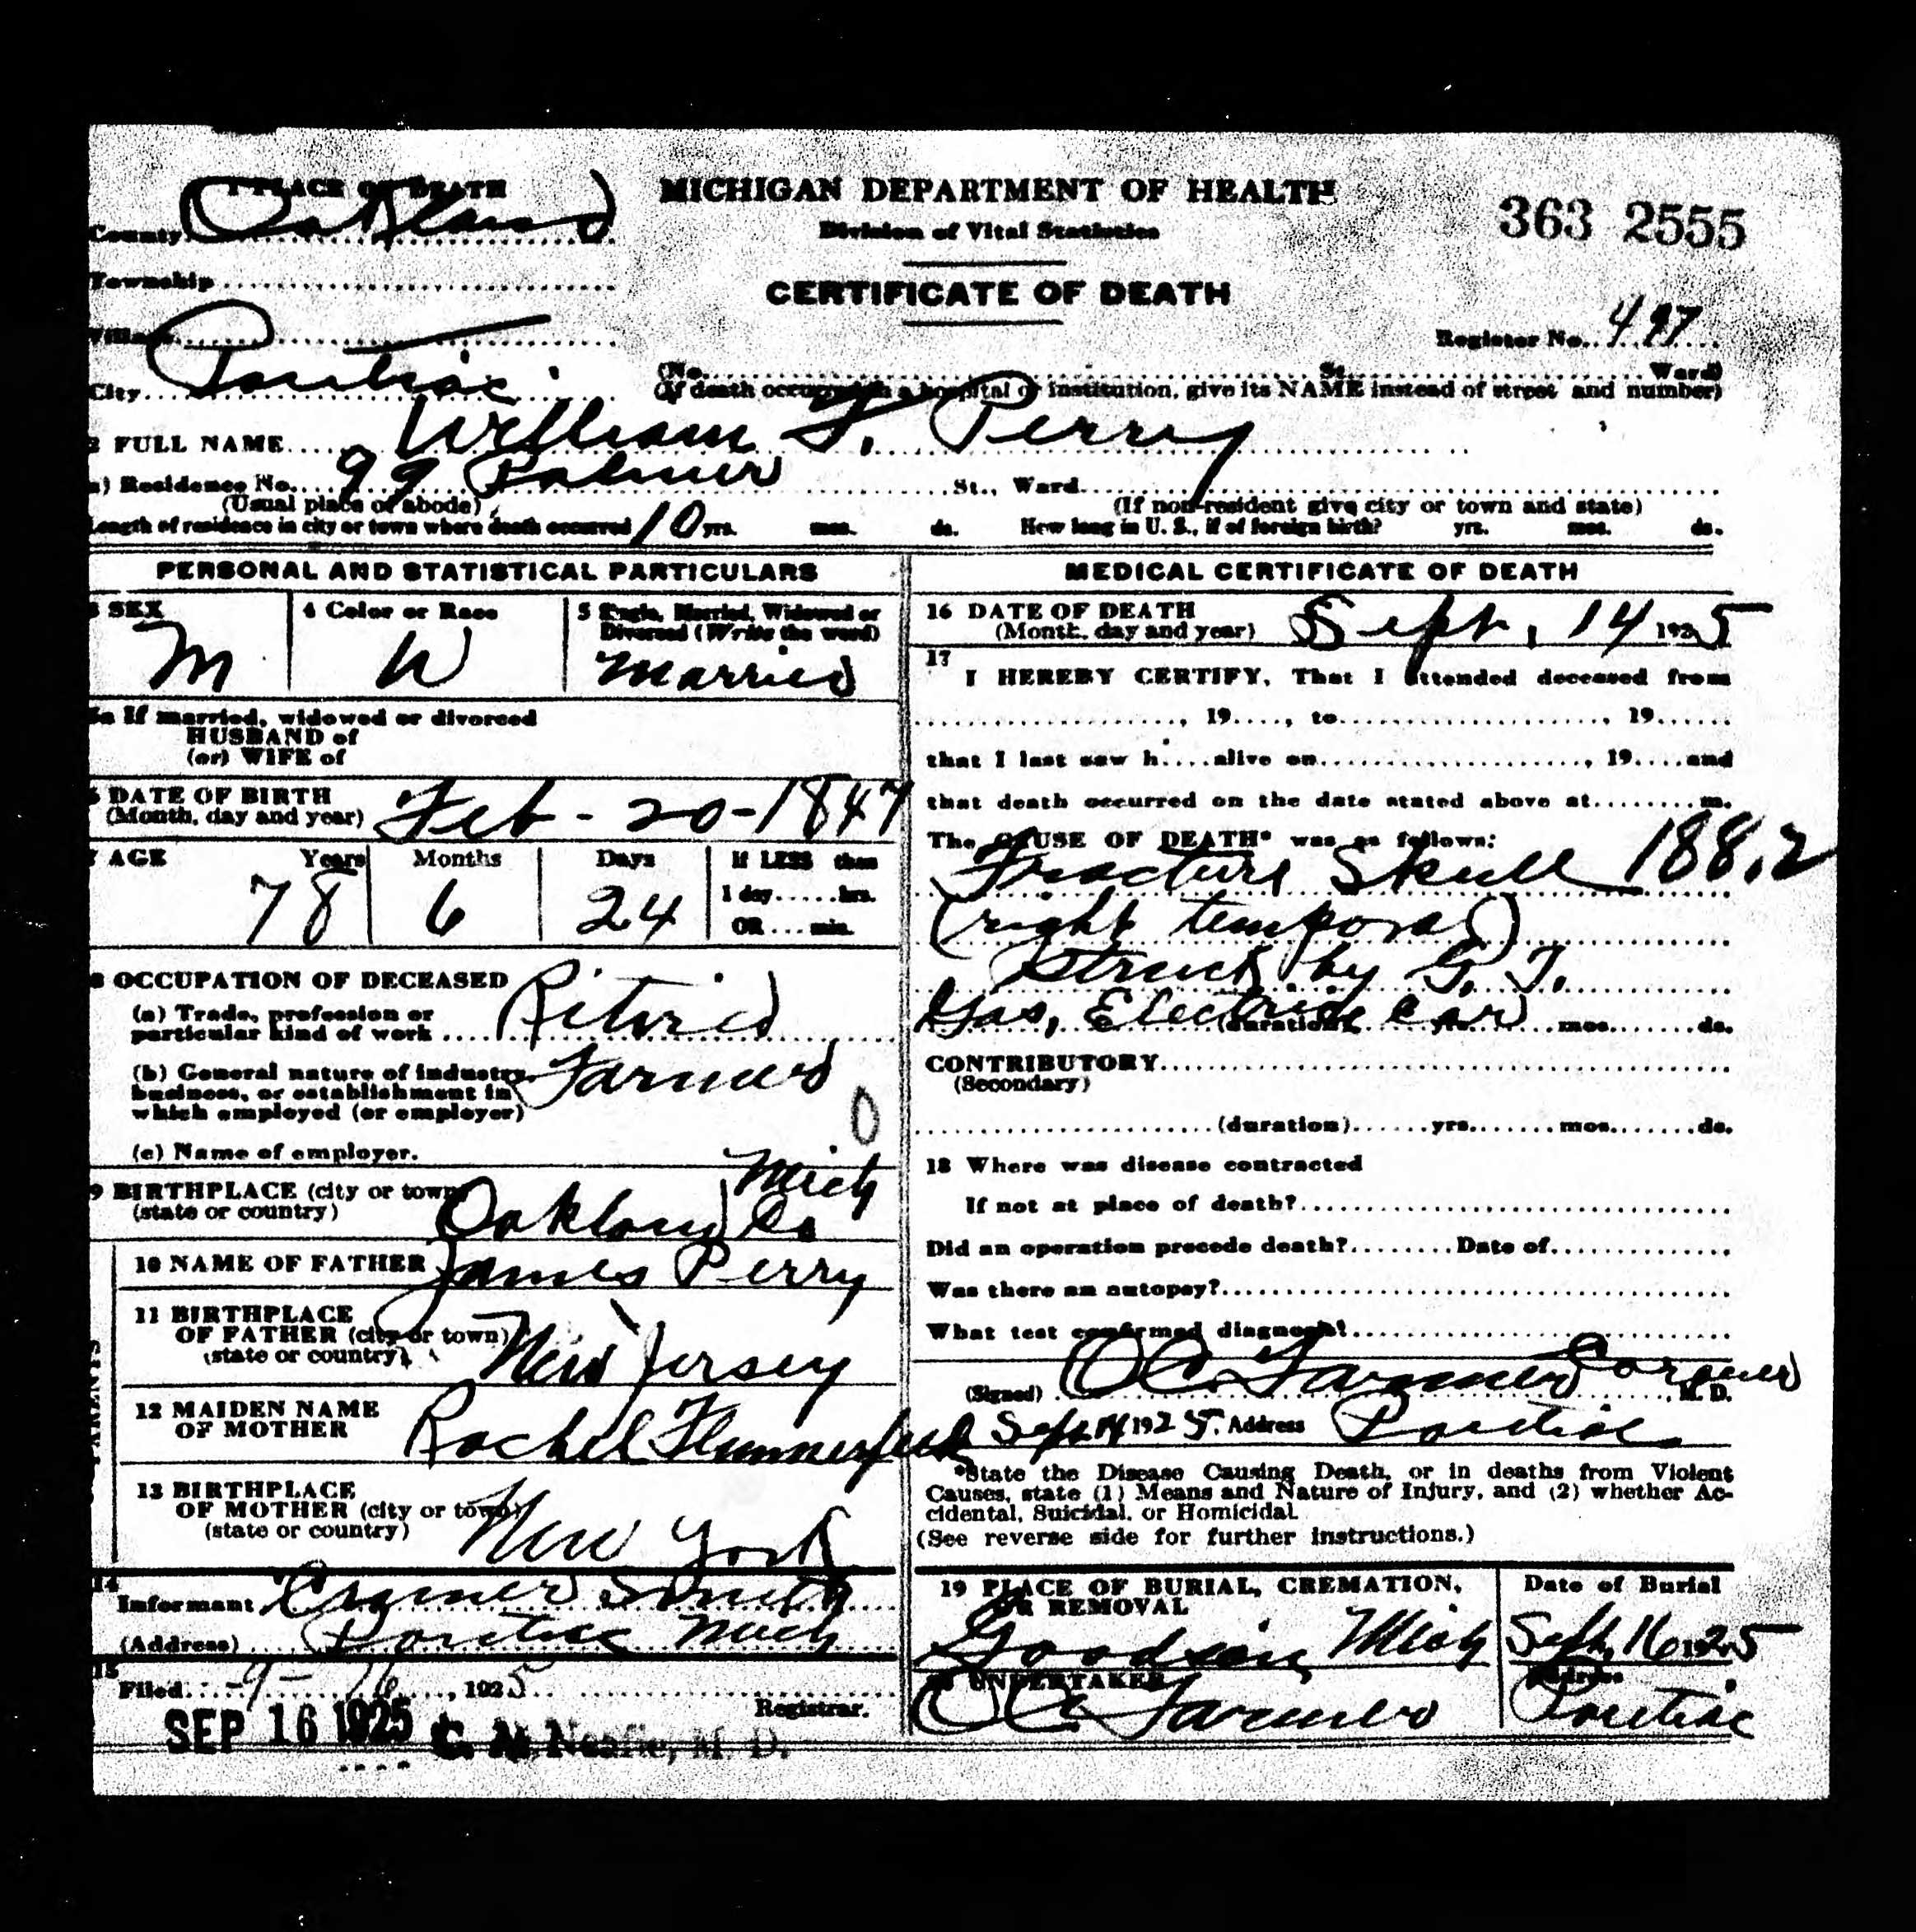 1 PLACE OF DEATH
County Oakland
Township
Village
City Pontiac
MICHIGAN DEPARTMENT OF HEALTH
Division of Vital Statistics
CERTIFICATE OF DEATH
363 2555
Register No. 497
(No. St. Ward)
(If death occurred in a hospital or institution, give its NAME instead of street and number)
2 FULL NAME William F. Perry
a) Residence No. 99 Palmer St., Ward
(Usual place of abode) (If non-resident give city or town and state)
Length of residence in city or town where death occurred 10 yrs. mos. ds. How long in U. S., if of foreign birth? yrs. mos. ds.
PERSONAL AND STATISTICAL PARTICULARS
3 SEX
M
4 Color or Race
W
5 Single, Married, Widowed or
Divorced (Write the word)
Married
5a If married, widowed or divorced
HUSBAND of
(or) WIFE of
6 DATE OF BIRTH
(Month, day and year) Feb - 20 - 1847
7 AGE Years Months Days If LESS than
78 6 24 1 day hrs.
OR min.
8 OCCUPATION OF DECEASED
(a) Trade, profession or
particular kind of work Retired
(b) General nature of industry
business, or establishment in
which employed (or employer) Farmer
0
(c) Name of employer.
9 BIRTHPLACE (city or town)
(state or country) Oakland Co Mich
PARENTS
10 NAME OF FATHER James Perry
11 BIRTHPLACE
OF FATHER (city or town)
(state or country) New Jersey
12 MAIDEN NAME
OF MOTHER Rachel
13 BIRTHPLACE
OF MOTHER (city or town)
(state or country) New York
14
Informant Cramer Smith
(Address) Pontiac Mich
15
Filed 9-16, 1925
Registrar.
SEP 16 1925 C. A. Neafie, M. D.
MEDICAL CERTIFICATE OF DEATH
16 DATE OF DEATH
(Month, day and year) Sept. 14 1925
17
I HEREBY CERTIFY, That I attended deceased from
, 19 , to , 19
that I last saw h alive on , 19 and
that death occurred on the date stated above at m.
The CAUSE OF DEATH* was as follows:
Fracture Skull 188.2
(right temporal)
Struck by G. T.
Gas, Electric Car
(duration) yrs. mos. ds.
CONTRIBUTORY
(Secondary)
(duration) yrs. mos. ds.
18 Where was disease contracted
If not at place of death?
Did an operation precede death? Date of
Was there an autopsy?
What test confirmed diagnosis?
(Signed) O C Farmer Coroner M. D.
Sept 14 1925. Address Pontiac
*State the Disease Causing Death, or in deaths from Violent
Causes, state (1) Means and Nature of Injury, and (2) whether Ac-
cidental, Suicidal, or Homicidal.
(See reverse side for further instructions.)
19 PLACE OF BURIAL, CREMATION,
OR REMOVAL
Goodison, Mich
Date of Burial
Sept. 16 1925
20 UNDERTAKER
O C Farmer
Address
Pontiac